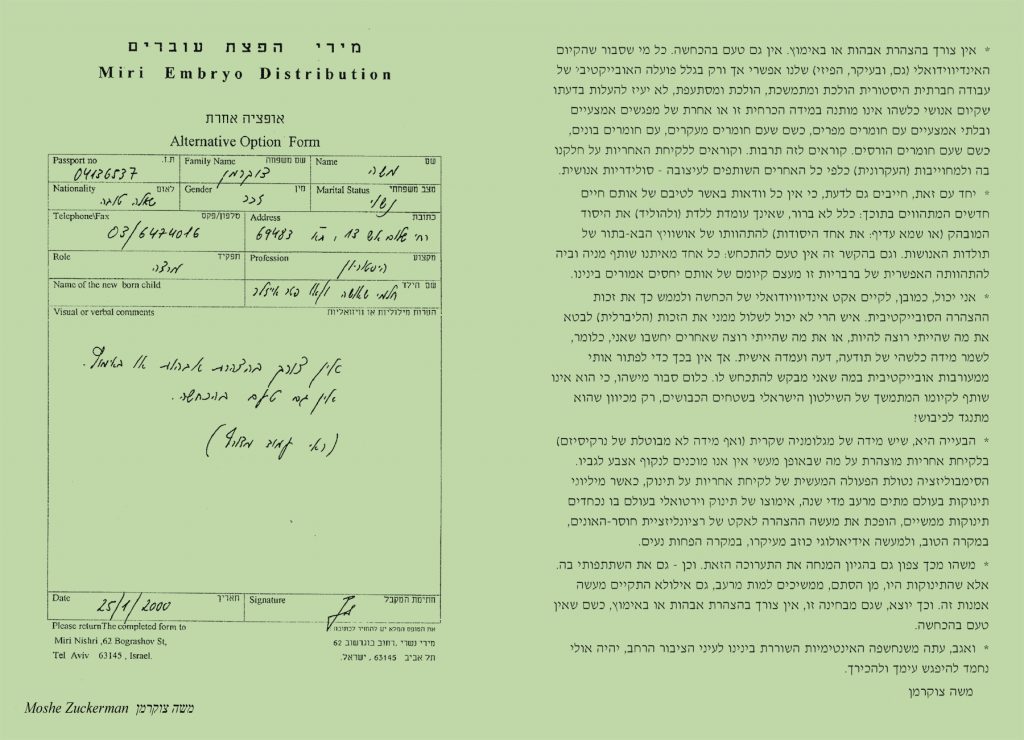 מירי הפצת עוברים
Miri Embryo Distribution
אופציה אחרת
Alternative Option Form
Passport no ת.ז. Family Name שם משפחה Name שם
04136537 צוקרמן משה
Nationality לאום Gender מין Marital Status מצב משפחתי
שאלה טובה זכר נשוי
Telephone\Fax טלפון/פקס Address כתובת
03/6474016 רח' שלום אש 13, ת"א 69483
Role תפקיד Profession מקצוע
מרצה היסטוריון
Name of the new born child שם הילד
Visual or verbal comments הערות מילוליות או וויזואליות
אין צורך בהצהרת אבהות או באימוץ.
אין גם טעם בהכחשה.
(ראי עמוד מצורף)
Date תאריך Signature חתימת המקבל
25/1/2000
Please return The completed form to את הטופס המלא יש להחזיר לכתובת:
Miri Nishri ,62 Bograshov St, מירי נשרי ,רחוב בוגרשוב 62
Tel Aviv 63145 , Israel. תל אביב 63145 ,ישראל.
Moshe Zuckerman משה צוקרמן
* אין צורך בהצהרת אבהות או באימוץ. אין גם טעם בהכחשה. כל מי שסבור שהקיום
האינדיווידואלי (גם, ובעיקר, הפיזי) שלנו אפשרי אך ורק בגלל פועלה האובייקטיבי של
עבודה חברתית היסטורית הולכת ומתמשכת, הולכת ומסתעפת, לא יעיז להעלות בדעתו
שקיום אנושי כלשהו אינו מותנה במידה הכרחית זו או אחרת של מפגשים אמצעיים
ובלתי אמצעיים עם חומרים מפרים, כשם שעם חומרים מעקרים, עם חומרים בונים,
כשם שעם חומרים הורסים. קוראים לזה תרבות. וקוראים ללקיחת האחריות על חלקנו
בה ולמחוייבות (העקרונית) כלפי כל האחרים השותפים לעיצובה - סולידריות אנושית.
* יחד עם זאת, חייבים גם לדעת, כי אין כל וודאות באשר לטיבם של אותם חיים
חדשים המתהווים בתוכך: כלל לא ברור, שאינך עומדת ללדת (ולהוליד) את היסוד
המובהק (או שמא עדיף: את אחד היסודות) להתהוותו של אושוויץ הבא-בתור של
תולדות האנושות. וגם בהקשר זה אין טעם להתכחש: כל אחד מאיתנו שותף מניה וביה
להתהוותה האפשרית של ברבריות זו מעצם קיומם של אותם יחסים אמורים בינינו.
* אני יכול, כמובן, לקיים אקט אינדיווידואלי של הכחשה ולממש כך את זכות
ההצהרה הסובייקטיבית. איש הרי לא יכול לשלול ממני את הזכות (הליברלית) לבטא
את מה שהייתי רוצה להיות, או את מה שהייתי רוצה שאחרים יחשבו שאני, כלומר,
לשמר מידה כלשהי של תודעה, דעה ועמדה אישית. אך אין בכך כדי לפתור אותי
ממעורבות אובייקטיבית במה שאני מבקש להתכחש לו. כלום סבור מישהו, כי הוא אינו
שותף לקיומו המתמשך של השילטון הישראלי בשטחים הכבושים, רק מכיוון שהוא
מתנגד לכיבוש!
* הבעייה היא, שיש מידה של מגלומניה שקרית (ואף מידה לא מבוטלת של נרקיסיזם)
בלקיחת אחריות מוצהרת על מה שבאופן מעשי אין אנו מוכנים לנקוף אצבע לגביו.
הסימבוליזציה נטולת הפעולה המעשית של לקיחת אחריות על תינוק, כאשר מיליוני
תינוקות בעולם מתים מרעב מדי שנה, אימוצו של תינוק וירטואלי בעולם בו נכחדים
תינוקות ממשיים, הופכת את מעשה ההצהרה לאקט של רציונליזציית חוסר-האונים,
במקרה הטוב, ולמעשה אידיאולוגי כוזב מעיקרו, במקרה הפחות נעים.
* משהו מכך צפון גם בהגיון המנחה את התערוכה הזאת. וכן - גם את השתתפותי בה.
אלא שהתינוקות היו, מן הסתם, ממשיכים למות מרעב, גם אילולא התקיים מעשה
אמנות זה. וכך יוצא, שגם מבחינה זו, אין צורך בהצהרת אבהות או באימוץ, כשם שאין
טעם בהכחשה.
* ואגב, עתה משנחשפה האינטימיות השוררת בינינו לעיני הציבור הרחב, יהיה אולי
נחמד להיפגש עימך ולהכירך.
משה צוקרמן